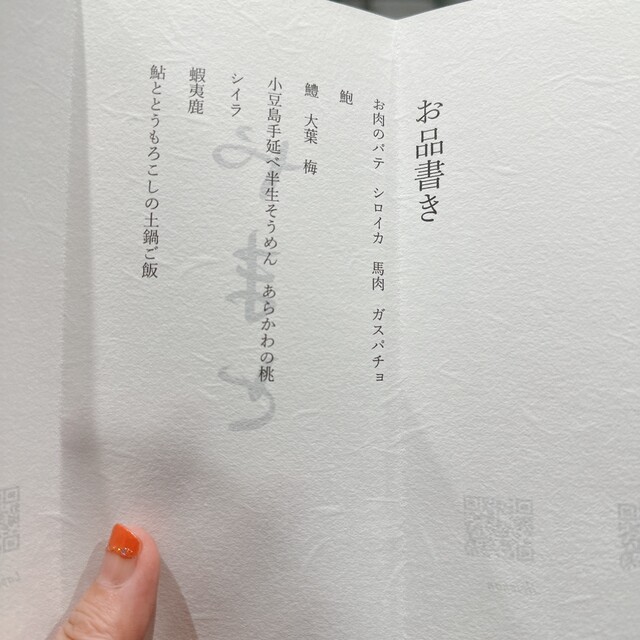 お品書き
お肉のパテ シロイカ 馬肉 ガスパチョ
鮑
鱧 大葉 梅
小豆島手延べ半生そうめん あらかわの桃
シイラ
蝦夷鹿
鮎ととうもろこしの土鍋ご飯